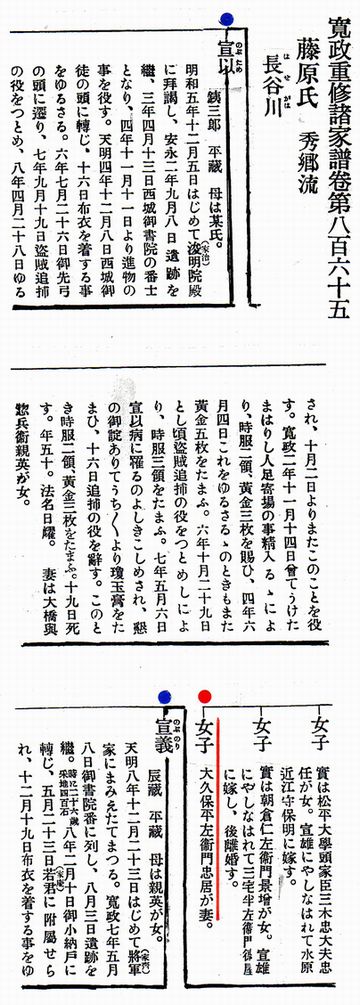 寛政重修諸家譜巻第八百六十五
藤原氏 秀郷流
長谷川
はせがは
宣以
のぶため
銕三郎 平蔵 母は某氏。
明和五年十二月五日はじめて浚明院殿(家治)
に拝謁し、安永二年九月八日遺跡を
継、三年四月十三日西城御書院の番士
となり、四年十一月十一日より進物の
事を役す。天明四年十二月八日西城御
徒の頭に轉じ、十六日布衣を着する事
をゆるさる。六年七月二十六日御先弓
の頭に遷り、七年九月十九日盗賊追捕
の役をつとめ、八年四月二十八日ゆる
され、十月二日よりまたこのことを役
す。寛政二年十一月十四日曾てうけた
まはりし人足寄場の事精入るゝによ
り、時服二領、黄金三枚を賜ひ、四年六
月四日これをゆるさるゝのときもまた
黄金五枚をたまふ。六年十月二十九日
とし頃盗賊追捕の役をつとめしによ
り、時服三領をたまふ。七年五月六日
宣以病に罹るのよしきこしめされ、懇
の御諚ありてうち〳〵より瓊玉膏をた
まひ、十六日追捕の役を辞す。このと
き時服二領、黄金三枚をたまふ。十九日死
す。年五十。法名日耀。 妻は大橋與
惣兵衛親英が女。
女子
實は松平大學頭家臣三木忠大夫忠
任が女。宣雄にやしなはれて水原
近江守保明に嫁す。
女子
實は朝倉仁左衛門景増が女。宣雄
にやしなはれて三宅半左衛門
に嫁し、後離婚す。
女子
大久保平左衛門忠居が妻。
宣義
のぶのり
辰蔵 平蔵 母は親英が女。
天明八年十二月二十三日はじめて将軍(家斉)
家にまみえたてまつる。寛政七年五月
八日御書院番に列し、八月三日遺跡を
継。時に二十六歳采地四百石 八年二月十日御小納戸に
轉じ、五月二十三日若君(家慶)に附屬せら
れ、十二月十九日布衣を着する事をゆ